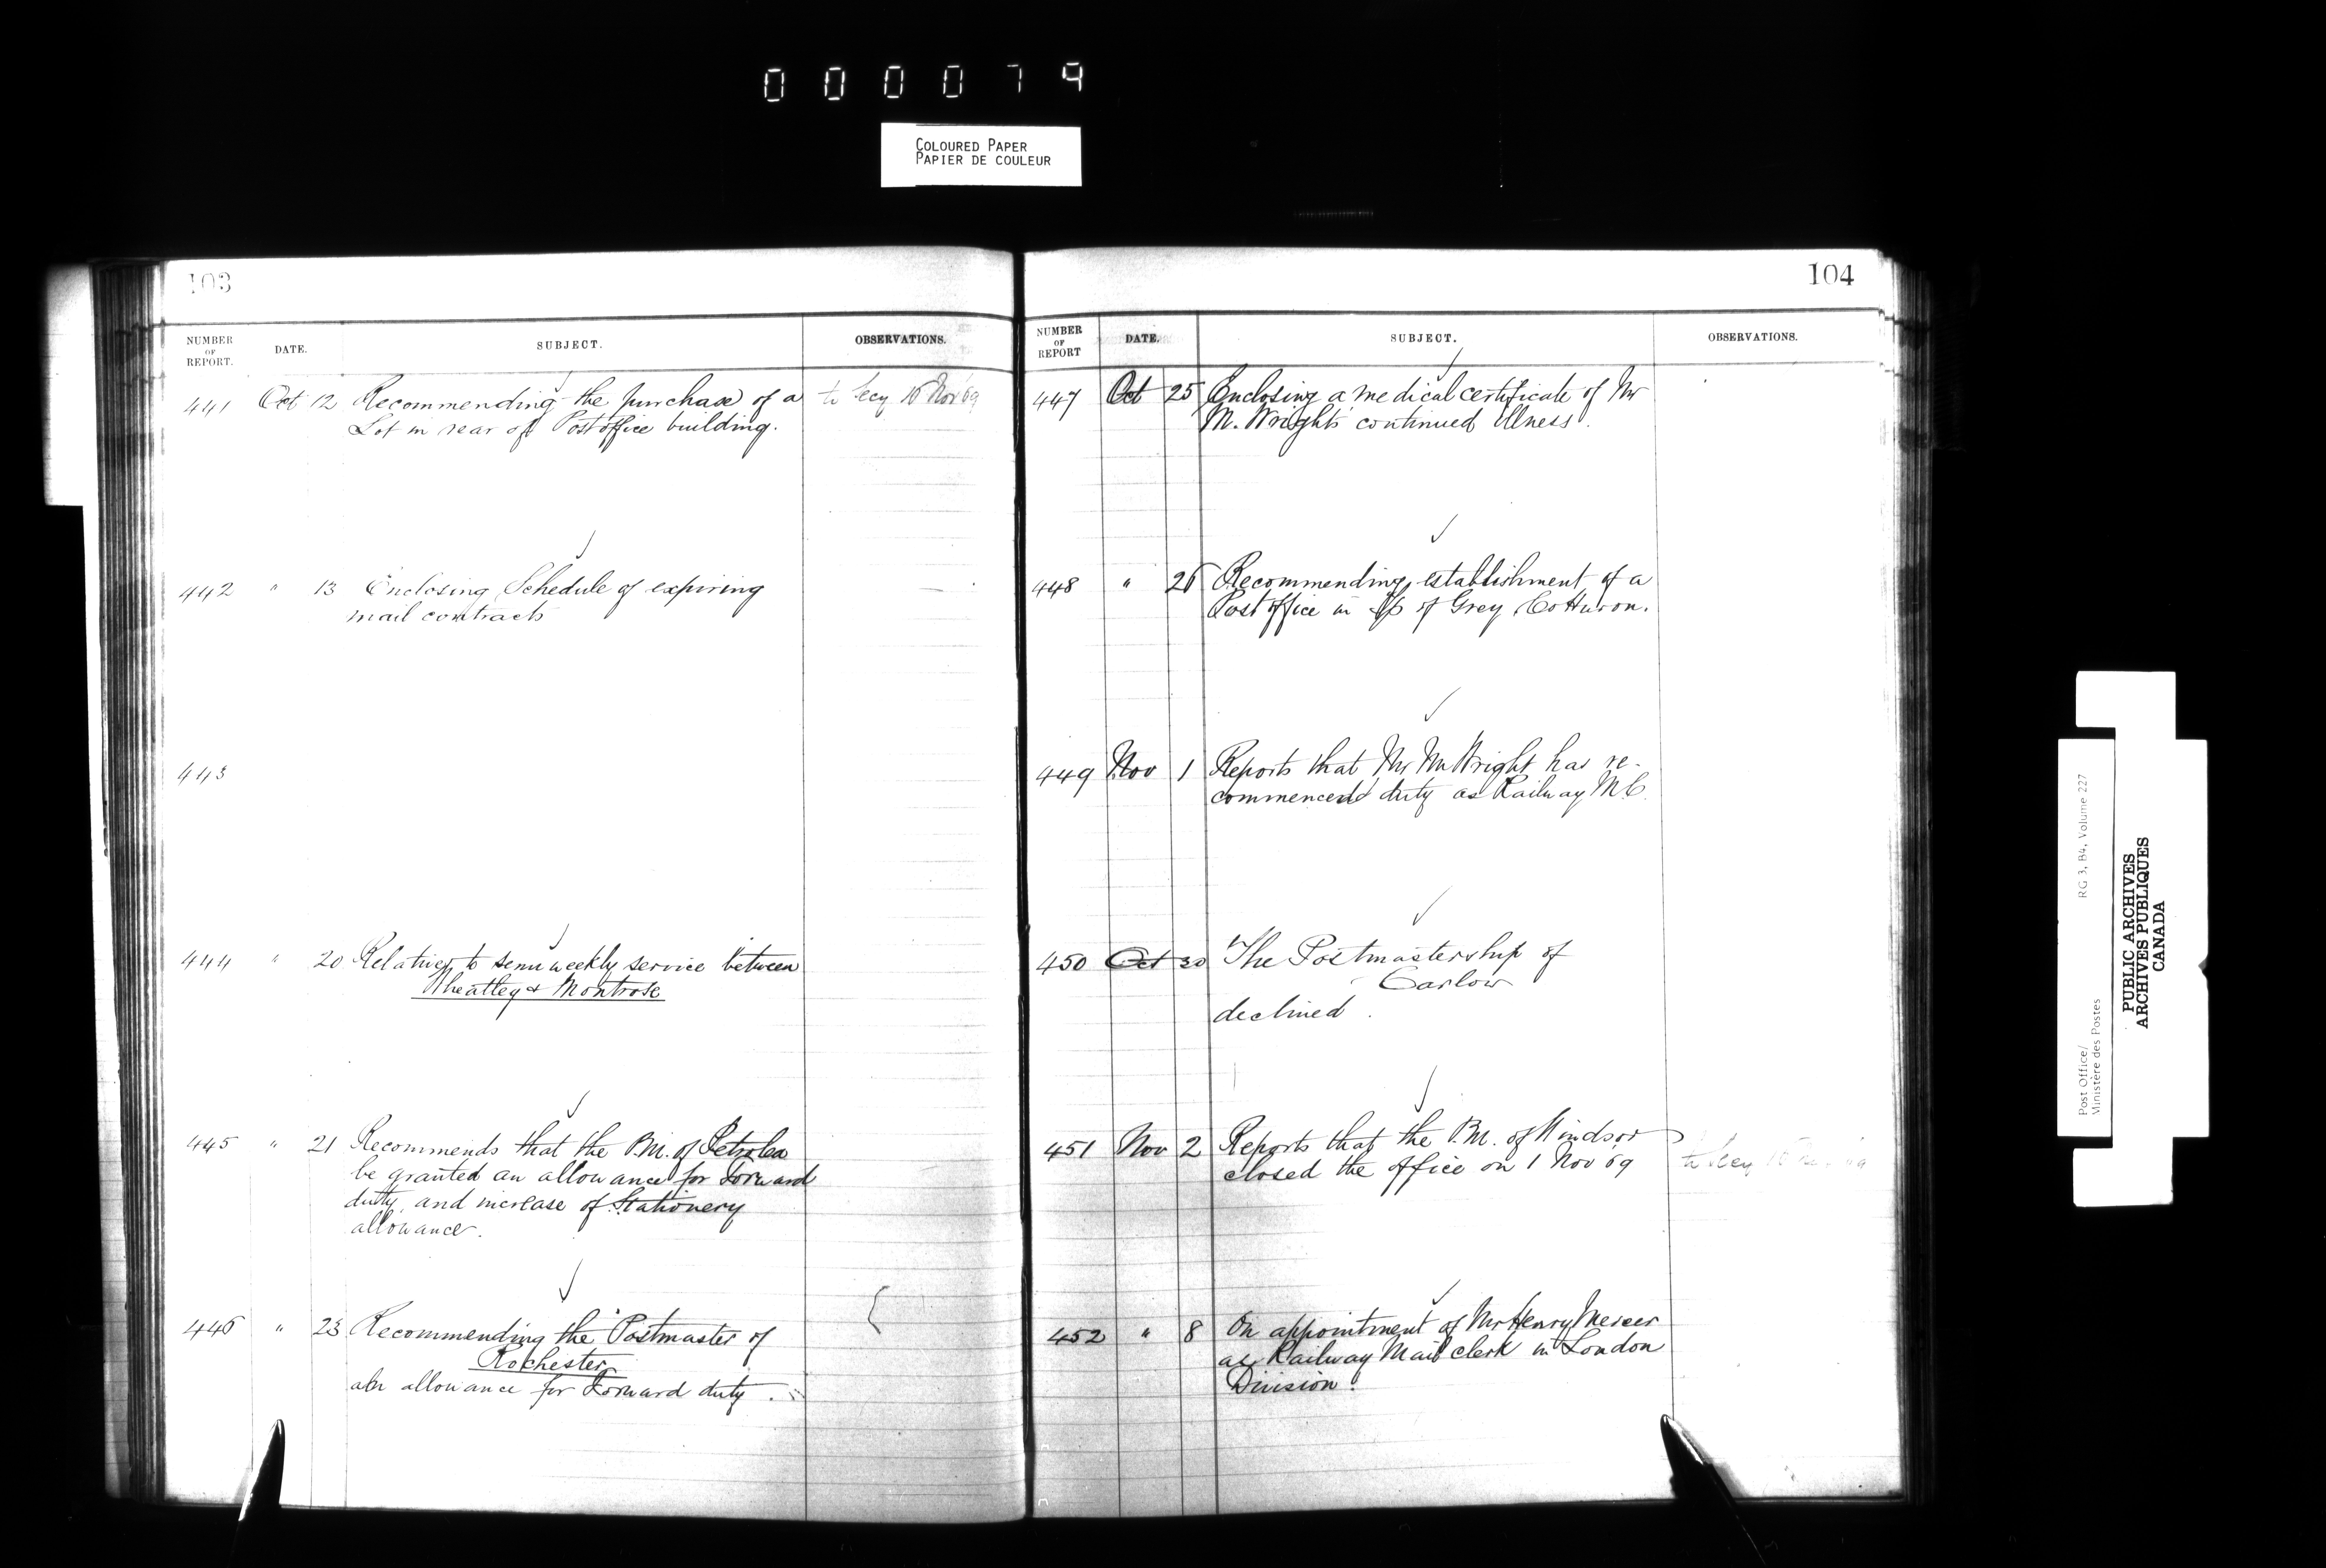 000079
COLOURED PAPER
PAPIER DE COULEUR
103
NUMBER OF REPORT. DATE. SUBJECT. OBSERVATIONS.
441 Oct 12 Recommending the purchase of a to Secy 10 Nov 69
Lot in rear of Post office building.
442 " 13 Enclosing Schedule of expiring
mail contracts
443
444 " 20 Relative to semi weekly service between
Wheatley & Montrose
445 " 21 Recommends that the P.M. of Petrolea
be granted an allowance for Forward
duty, and increase of Stationery
allowance.
446 " 23 Recommending the Postmaster of
Rochester
an allowance for Forward duty.
104
NUMBER OF REPORT DATE. SUBJECT. OBSERVATIONS.
447 Oct 25 Enclosing a medical certificate of Mr
M. Wright's continued illness.
448 " 26 Recommending establishment of a
Post office in Tp of Grey, Co Huron.
449 Nov 1 Reports that Mr Wright has re-
commenced duty as Railway M.C.
450 Oct 30 The Postmastership of
Carlow
declined.
451 Nov 2 Reports that the P.M. of Windsor
closed the office on 1 Nov 69 to Secy
452 " 8 On appointment of Mr Henry Mercer
as Railway Mail clerk in London
Division.
Post Office/ RG 3, B4, Volume 227
Ministère des Postes
PUBLIC ARCHIVES
ARCHIVES PUBLIQUES
CANADA